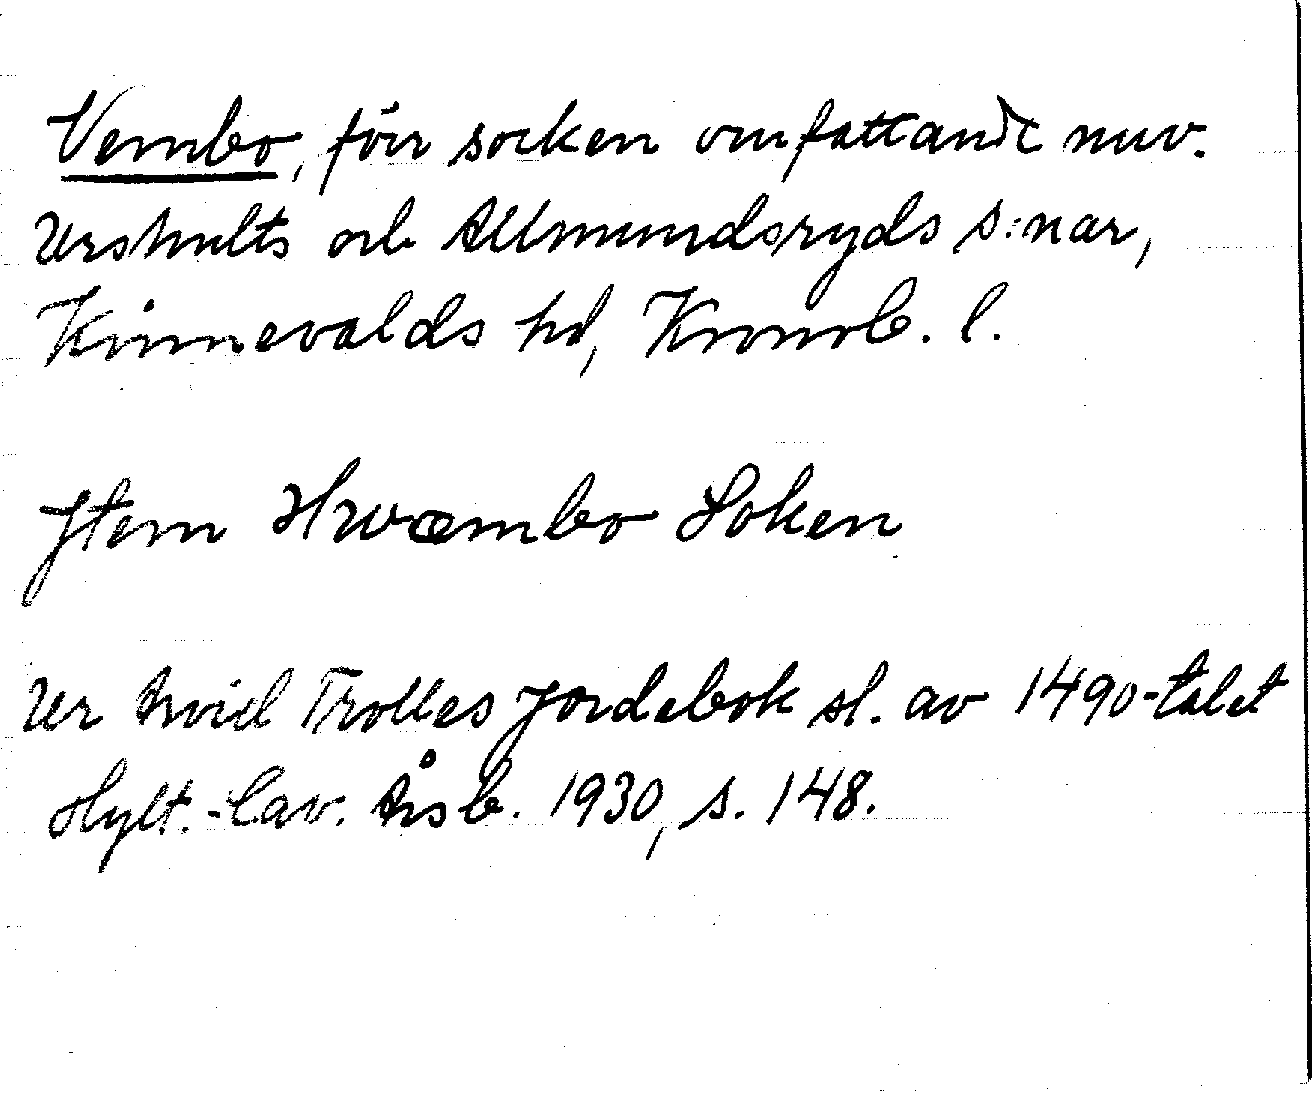 Vembo, förr socken omfattande nuv.
Urshults och Almundsryds s:nar,
Kinnevalds hd, Kronob. l.
Jtem Hwæmbo Soken
Ur Arvid Trolles Jordebok sl. av 1490-talet
Hylt.-Cav. Årsb. 1930, s. 148.